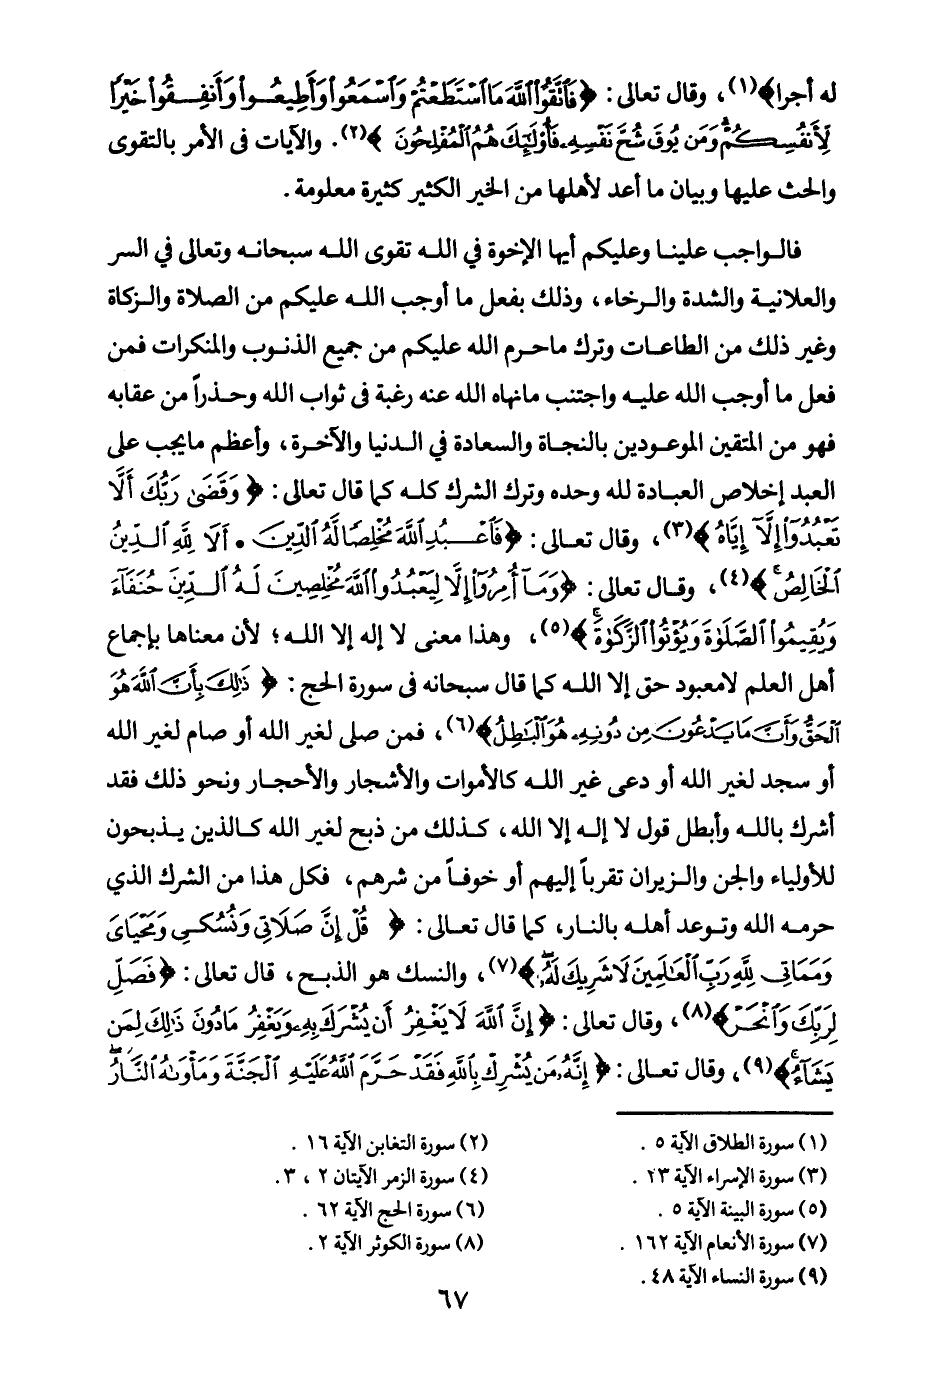 له أجرا﴾(١)، وقال تعالى: ﴿فَٱتَّقُوا۟ ٱللَّهَ مَا ٱسْتَطَعْتُمْ وَٱسْمَعُوا۟ وَأَطِيعُوا۟ وَأَنفِقُوا۟ خَيْرًا
لِّأَنفُسِكُمْ وَمَن يُوقَ شُحَّ نَفْسِهِۦ فَأُو۟لَٰٓئِكَ هُمُ ٱلْمُفْلِحُونَ﴾(٢). والآيات فى الأمر بالتقوى
والحث عليها وبيان ما أعد لأهلها من الخير الكثير كثيرة معلومة.
فالواجب علينا وعليكم أيها الإخوة في الله تقوى الله سبحانه وتعالى في السر
والعلانية والشدة والرخاء، وذلك بفعل ما أوجب الله عليكم من الصلاة والزكاة
وغير ذلك من الطاعات وترك ماحرم الله عليكم من جميع الذنوب والمنكرات فمن
فعل ما أوجب الله عليه واجتنب مانهاه الله عنه رغبة فى ثواب الله وحذراً من عقابه
فهو من المتقين الموعودين بالنجاة والسعادة في الدنيا والآخرة، وأعظم مايجب على
العبد إخلاص العبادة لله وحده وترك الشرك كله كما قال تعالى: ﴿وَقَضَىٰ رَبُّكَ أَلَّا
تَعْبُدُوٓا۟ إِلَّآ إِيَّاهُ﴾(٣)، وقال تعالى: ﴿فَٱعْبُدِ ٱللَّهَ مُخْلِصًا لَّهُ ٱلدِّينَ . أَلَا لِلَّهِ ٱلدِّينُ
ٱلْخَالِصُ﴾(٤)، وقال تعالى: ﴿وَمَآ أُمِرُوٓا۟ إِلَّا لِيَعْبُدُوا۟ ٱللَّهَ مُخْلِصِينَ لَهُ ٱلدِّينَ حُنَفَآءَ
وَيُقِيمُوا۟ ٱلصَّلَوٰةَ وَيُؤْتُوا۟ ٱلزَّكَوٰةَ﴾(٥)، وهذا معنى لا إله إلا الله؛ لأن معناها بإجماع
أهل العلم لامعبود حق إلا الله كما قال سبحانه فى سورة الحج: ﴿ذَٰلِكَ بِأَنَّ ٱللَّهَ هُوَ
ٱلْحَقُّ وَأَنَّ مَا يَدْعُونَ مِن دُونِهِۦ هُوَ ٱلْبَٰطِلُ﴾(٦)، فمن صلى لغير الله أو صام لغير الله
أو سجد لغير الله أو دعى غير الله كالأموات والأشجار والأحجار ونحو ذلك فقد
أشرك بالله وأبطل قول لا إله إلا الله، كذلك من ذبح لغير الله كالذين يذبحون
للأولياء والجن والزيران تقرباً إليهم أو خوفاً من شرهم، فكل هذا من الشرك الذي
حرمه الله وتوعد أهله بالنار، كما قال تعالى: ﴿قُلْ إِنَّ صَلَاتِى وَنُسُكِى وَمَحْيَاىَ
وَمَمَاتِى لِلَّهِ رَبِّ ٱلْعَالَمِينَ لَا شَرِيكَ لَهُۥ﴾(٧)، والنسك هو الذبح، قال تعالى: ﴿فَصَلِّ
لِرَبِّكَ وَٱنْحَرْ﴾(٨)، وقال تعالى: ﴿إِنَّ ٱللَّهَ لَا يَغْفِرُ أَن يُشْرَكَ بِهِۦ وَيَغْفِرُ مَا دُونَ ذَٰلِكَ لِمَن
يَشَآءُ﴾(٩)، وقال تعالى: ﴿إِنَّهُۥ مَن يُشْرِكْ بِٱللَّهِ فَقَدْ حَرَّمَ ٱللَّهُ عَلَيْهِ ٱلْجَنَّةَ وَمَأْوَىٰهُ ٱلنَّارُ
(١) سورة الطلاق الآية ٥ .
(٢) سورة التغابن الآية ١٦ .
(٣) سورة الإسراء الآية ٢٣ .
(٤) سورة الزمر الآيتان ٢ ، ٣.
(٥) سورة البينة الآية ٥ .
(٦) سورة الحج الآية ٦٢ .
(٧) سورة الأنعام الآية ١٦٢ .
(٨) سورة الكوثر الآية ٢.
(٩) سورة النساء الآية ٤٨ .
٦٧